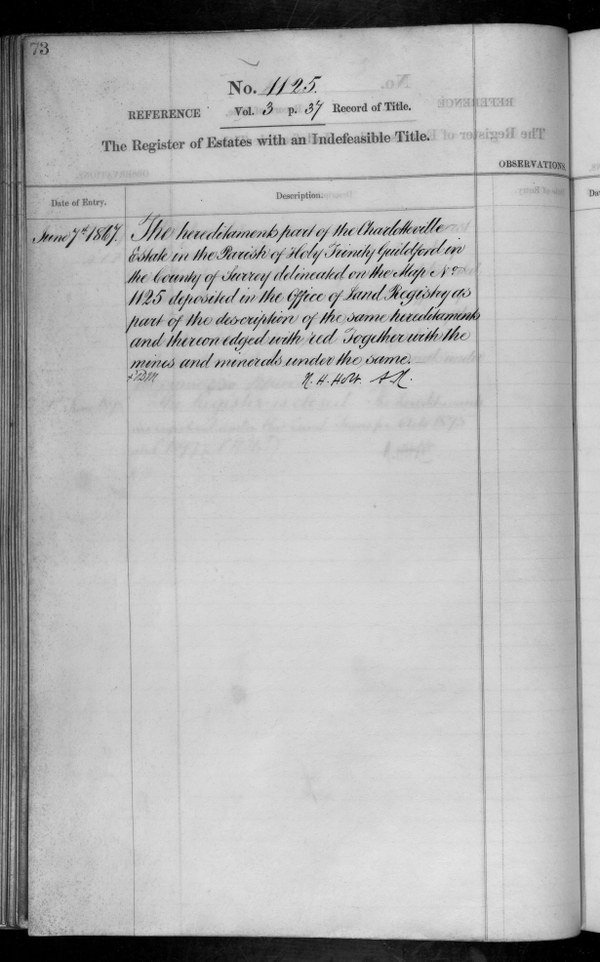 73
No. 1125.
REFERENCE Vol. 3 p. 37 Record of Title.
The Register of Estates with an Indefeasible Title.
OBSERVATIONS
Date of Entry.
Description.
June 7th 1867.
The hereditaments part of the Charlotteville
Estate in the Parish of Holy Trinity Guildford in
the County of Surrey delineated on the Map No
1125 deposited in the Office of Land Registry as
part of the description of the same hereditaments
and thereon edged with red Together with the
mines and minerals under the same.
R. H. Holt. A.R.